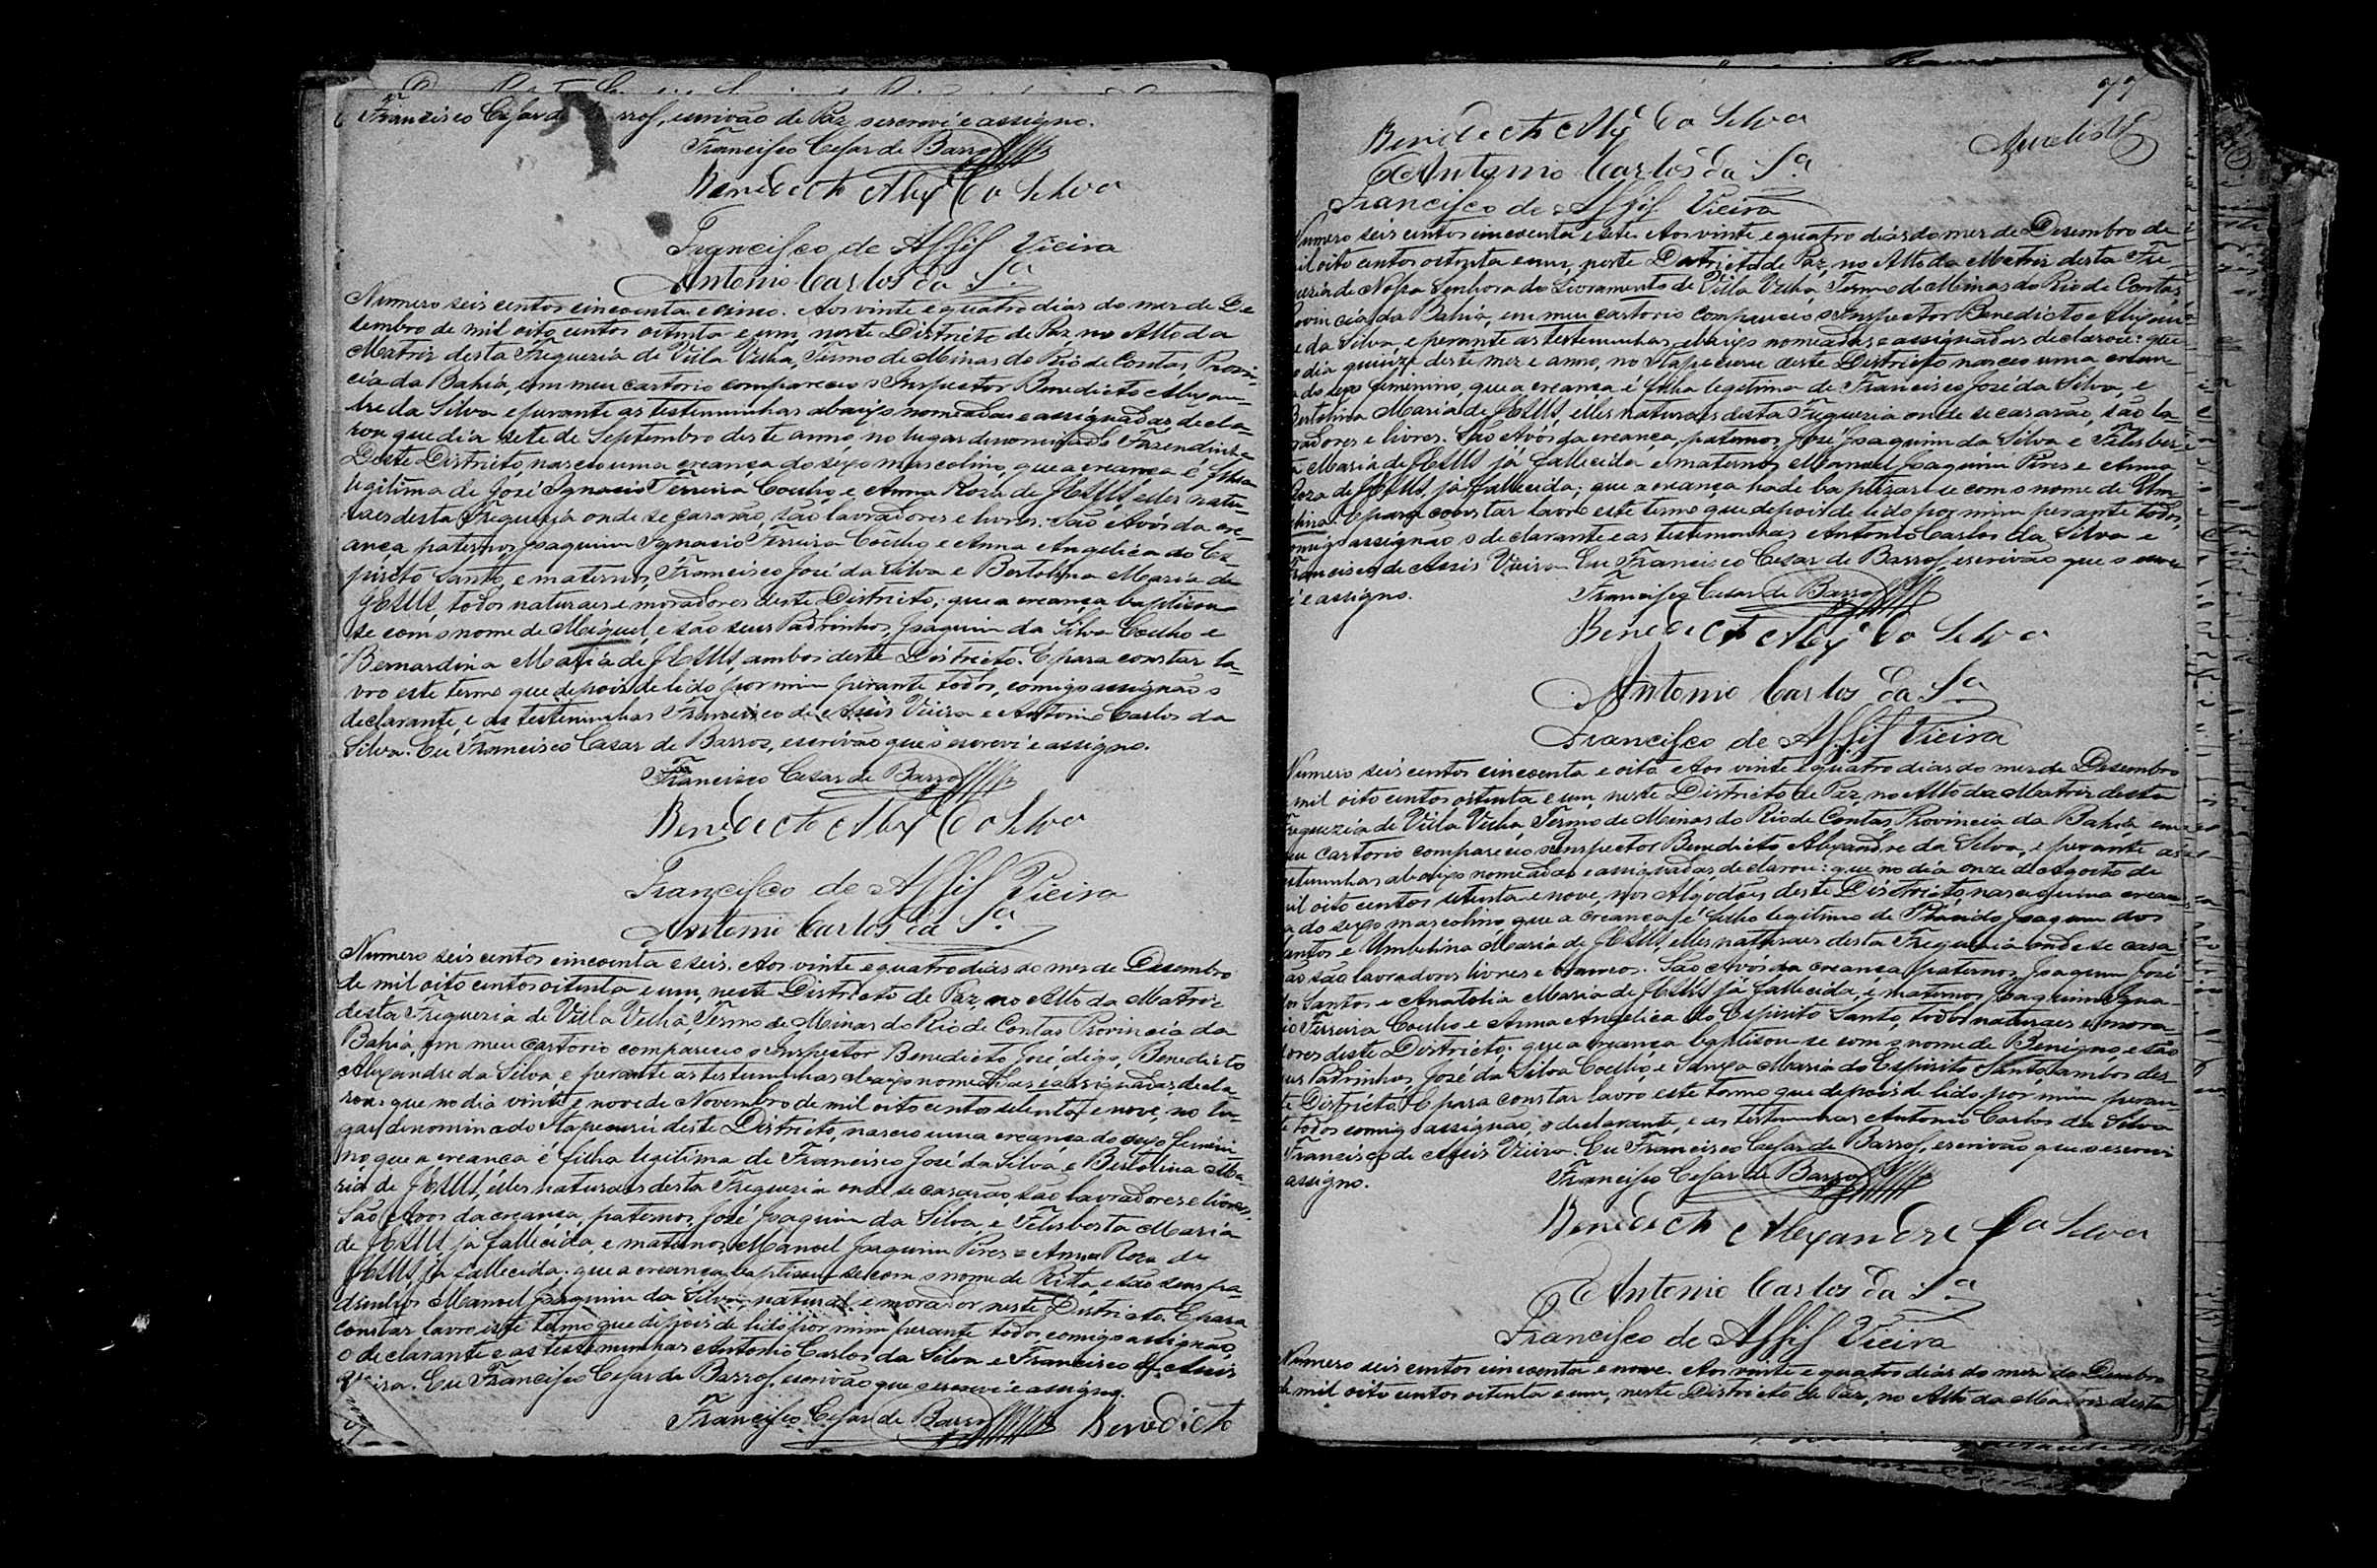 Francisco Cesar de Barros, escrivão de Paz escrevi e assigno.
Francisco Cesar de Barros
Benedicto Alex da Silva
Francisco de Assis Vieira
Antonio Carlos da Sª
Numero seis centos cincoenta e cinco. Aos vinte e quatro dias do mez de De
sembro de mil oito centos oitenta e um, neste Districto de Paz, no Alto da
Matriz desta Freguezia de Villa Velha, Termo de Minas do Rio de Contas, Provin-
cia da Bahia, em meu cartorio compareceu o Inspector Benedicto Alexan-
dre da Silva e perante as testemunhas abaixo nomeadas e assignadas, decla-
rou que dia sete de Septembro deste anno, no lugar denominado Fasendinha
Deste Districto nasceo uma creança do sexo mascolino, que a creança é filho
legitima de José Ignacio Ferreira Coelho, e Anna Roza de JESUS, elles natu-
raes desta Freguezia onde se casarão, são lavradores e livres. São Avós da cre-
ança paternos Joaquim Ignacio Ferreira Coelho e Anna Angelica do Es-
pirito Santo, e maternos, Francisco José da Silva e Bertolina Maria de
JESUS, todos naturaes e moradores deste Districto; que a creança baptisou
se com o nome de Miguel, e são seus Padrinhos, Joaquim da Silva Coelho e
Bernardina Maria de JESUS, ambos deste Districto. E para constar la-
vro este termo que depois de lido por mim perante todos, comigo assignão o
declarante, e as testemunhas Francisco de Assis Vieira e Antonio Carlos da
Silva. Eu Francisco Cesar de Barros, escrivão que o escrevi e assigno.
Francisco Cesar de Barros
Benedicto Alex da Silva
Francisco de Assis Vieira
Antonio Carlos da Sª
Numero seis centos cincoenta e seis. Aos vinte e quatro dias do mes de Desembro
de mil oito centos oitenta e um, neste Districto de Paz, no Alto da Matriz
desta Freguezia de Villa Velha, Termo de Minas do Rio de Contas Provincia da
Bahia, em meu cartorio compareceo o Inspector Benedicto José, digo, Benedicto
Alexandre da Silva, e perante as testemunhas abaixo nomeadas e assignadas, decla-
rou: que no dia vinte e nove de Novembro de mil oito centos setenta e nove, no lu-
gar denominado Itapecurú deste Districto, nasceo uma creança do sexo femini-
no que a creança é filha legitima de Francisco José da Silva, e Bertolina Ma-
ria de JESUS, elles naturaes desta Freguezia onde se casarão, são lavradores e livres.
São Avós da creança, paternos, José Joaquim da Silva, e Felisberta Maria
de JESUS, já fallecida, e maternos, Manoel Joaquim Pires = Anna Roza de
JESUS, já fallecida: que a creança baptisou-se com o nome de Rita, e são seus pa-
drinhos Manoel Joaquim da Silva, natural e morador neste Districto. E para
constar lavro este termo que depois de lido por mim perante todos comigo assignão,
o declarante e as testemunhas Antonio Carlos da Silva e Francisco de Assis
Vieira. Eu Francisco Cesar de Barros, escrivão que o escrevi e assigno.
Francisco Cesar de Barros Benedicto
77
Benedicto Alxe da Silva
Antonio Carlos da Sª
Francisco de Assis Vieira
Numero seis centos cincoenta e sete. Aos vinte e quatro dias do mez de Desembro de
mil oito centos oitenta e um, neste Districto de Paz, no Alto da Matriz desta Fre
guezia de Nossa Senhora do Livramento de Villa Velha, Termo de Minas do Rio de Contas,
Provincia da Bahia, em meu cartorio compareceo o Inspector Benedicto Alexan-
dre da Silva, e perante as testemunhas abaixo nomeadas e assignadas declarou: que
no dia quinze deste mez e anno, no Itapecurú deste Districto nasceo uma crean-
ça do sexo femenino, que a creança é filha legitima de Francisco José da Silva, e
Bertolina Maria de JESUS, elles naturaes desta Freguezia onde se casarão, são la-
vradores e livres. São Avós da creança, paternos José Joaquim da Silva e Felisber
ta Maria de JESUS já fallecida e maternos Manoel Joaquim Pires e Anna
Roza de JESUS, já fallecida; que a creança hade baptizar-se com o nome de Um-
belina. E para constar lavro este termo que depois de lido por mim perante todos,
comigo assignão o declarante e as testemunhas Antonio Carlos da Silva e
Francisco de Assis Vieira. Eu Francisco Cesar de Barros, escrivão que o escre
vi e assigno.
Francisco Cesar de Barros
Benedicto Alxe da Silva
Antonio Carlos da Sª
Francisco de Assis Vieira
Numero seis centos cincoenta e oito. Aos vinte e quatro dias do mez de Desembro
mil oito centos oitenta e um, neste Districto de Paz, no Alto da Matriz desta
Freguezia de Villa Velha, Termo de Minas do Rio de Contas, Provincia da Bahia em
meu cartorio compareceo o Inspector Benedicto Alexandre da Silva, e perante as
testemunhas abaixo nomeadas e assignadas declarou: que no dia onze de Agosto de
mil oito centos setenta e nove, nos Algodões deste Districto, nasceo uma crean-
ça do sexo mascolino, que a creança é filho legitimo de Placido Joaquim dos
Santos e Umbelina Maria de JESUS, elles naturaes desta Freguezia onde se casa
rão são lavradores livres e brancos. São Avós da creança paternos, Joaquim José
dos Santos e Anatolia Maria de JESUS já fallecida, e maternos Joaquim Igna-
cio Ferreira Coelho e Anna Angelica do Espirito Santo, todos naturaes e mora-
dores deste Districto: que a creança baptisou-se com o nome de Benigno e são
seus Padrinhos, José da Silva Coelho, e Maria do Espirito Santo, ambos des-
te Districto. E para constar lavro este termo que depois de lido por mim peran-
te todos comigo assignão, o declarante, e as testemunhas Antonio Carlos da Silva
Francisco de Assis Vieira. Eu Francisco Cesar de Barros, escrivão que o escrevi
assigno.
Francisco Cesar de Barros
Benedicto Alexandre da Silva
Antonio Carlos da Sª
Francisco de Assis Vieira
Numero seis centos cincoenta e nove. Aos vinte e quatro dias do mez de Dembro
de mil oito centos oitenta e um, neste Districto de Paz, no Alto da Matriz desta